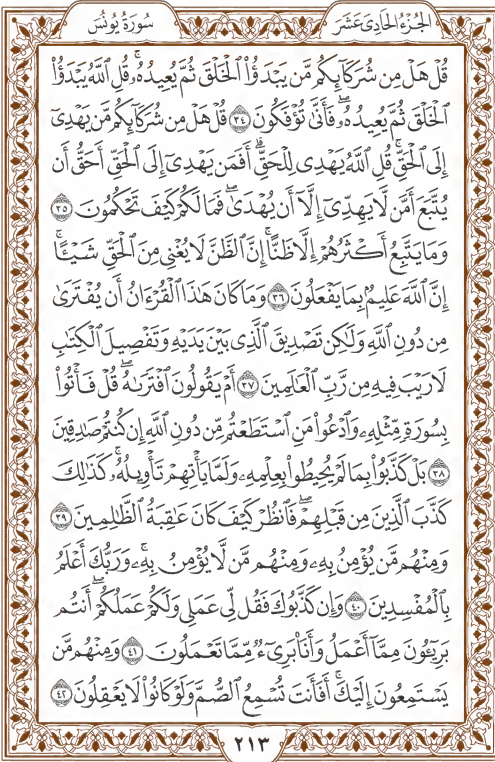 الجزء الحادي عشر
سورة يونس
قُلْ هَلْ مِن شُرَكَآئِكُم مَّن يَبْدَؤُا۟ ٱلْخَلْقَ ثُمَّ يُعِيدُهُۥ ۚ قُلِ ٱللَّهُ يَبْدَؤُا۟
ٱلْخَلْقَ ثُمَّ يُعِيدُهُۥ ۖ فَأَنَّىٰ تُؤْفَكُونَ ٣٤ قُلْ هَلْ مِن شُرَكَآئِكُم مَّن يَهْدِىٓ
إِلَى ٱلْحَقِّ ۚ قُلِ ٱللَّهُ يَهْدِى لِلْحَقِّ ۗ أَفَمَن يَهْدِىٓ إِلَى ٱلْحَقِّ أَحَقُّ أَن
يُتَّبَعَ أَمَّن لَّا يَهِدِّىٓ إِلَّآ أَن يُهْدَىٰ ۖ فَمَا لَكُمْ كَيْفَ تَحْكُمُونَ ٣٥
وَمَا يَتَّبِعُ أَكْثَرُهُمْ إِلَّا ظَنًّا ۚ إِنَّ ٱلظَّنَّ لَا يُغْنِى مِنَ ٱلْحَقِّ شَيْـًٔا ۚ
إِنَّ ٱللَّهَ عَلِيمٌۢ بِمَا يَفْعَلُونَ ٣٦ وَمَا كَانَ هَٰذَا ٱلْقُرْءَانُ أَن يُفْتَرَىٰ
مِن دُونِ ٱللَّهِ وَلَٰكِن تَصْدِيقَ ٱلَّذِى بَيْنَ يَدَيْهِ وَتَفْصِيلَ ٱلْكِتَٰبِ
لَا رَيْبَ فِيهِ مِن رَّبِّ ٱلْعَٰلَمِينَ ٣٧ أَمْ يَقُولُونَ ٱفْتَرَىٰهُ ۖ قُلْ فَأْتُوا۟
بِسُورَةٍ مِّثْلِهِۦ وَٱدْعُوا۟ مَنِ ٱسْتَطَعْتُم مِّن دُونِ ٱللَّهِ إِن كُنتُمْ صَٰدِقِينَ
٣٨ بَلْ كَذَّبُوا۟ بِمَا لَمْ يُحِيطُوا۟ بِعِلْمِهِۦ وَلَمَّا يَأْتِهِمْ تَأْوِيلُهُۥ ۚ كَذَٰلِكَ
كَذَّبَ ٱلَّذِينَ مِن قَبْلِهِمْ ۖ فَٱنظُرْ كَيْفَ كَانَ عَٰقِبَةُ ٱلظَّٰلِمِينَ ٣٩
وَمِنْهُم مَّن يُؤْمِنُ بِهِۦ وَمِنْهُم مَّن لَّا يُؤْمِنُ بِهِۦ ۚ وَرَبُّكَ أَعْلَمُ
بِٱلْمُفْسِدِينَ ٤٠ وَإِن كَذَّبُوكَ فَقُل لِّى عَمَلِى وَلَكُمْ عَمَلُكُمْ ۖ أَنتُم
بَرِيٓـُٔونَ مِمَّآ أَعْمَلُ وَأَنَا۠ بَرِىٓءٌ مِّمَّا تَعْمَلُونَ ٤١ وَمِنْهُم مَّن
يَسْتَمِعُونَ إِلَيْكَ ۚ أَفَأَنتَ تُسْمِعُ ٱلصُّمَّ وَلَوْ كَانُوا۟ لَا يَعْقِلُونَ ٤٢
٢١٣